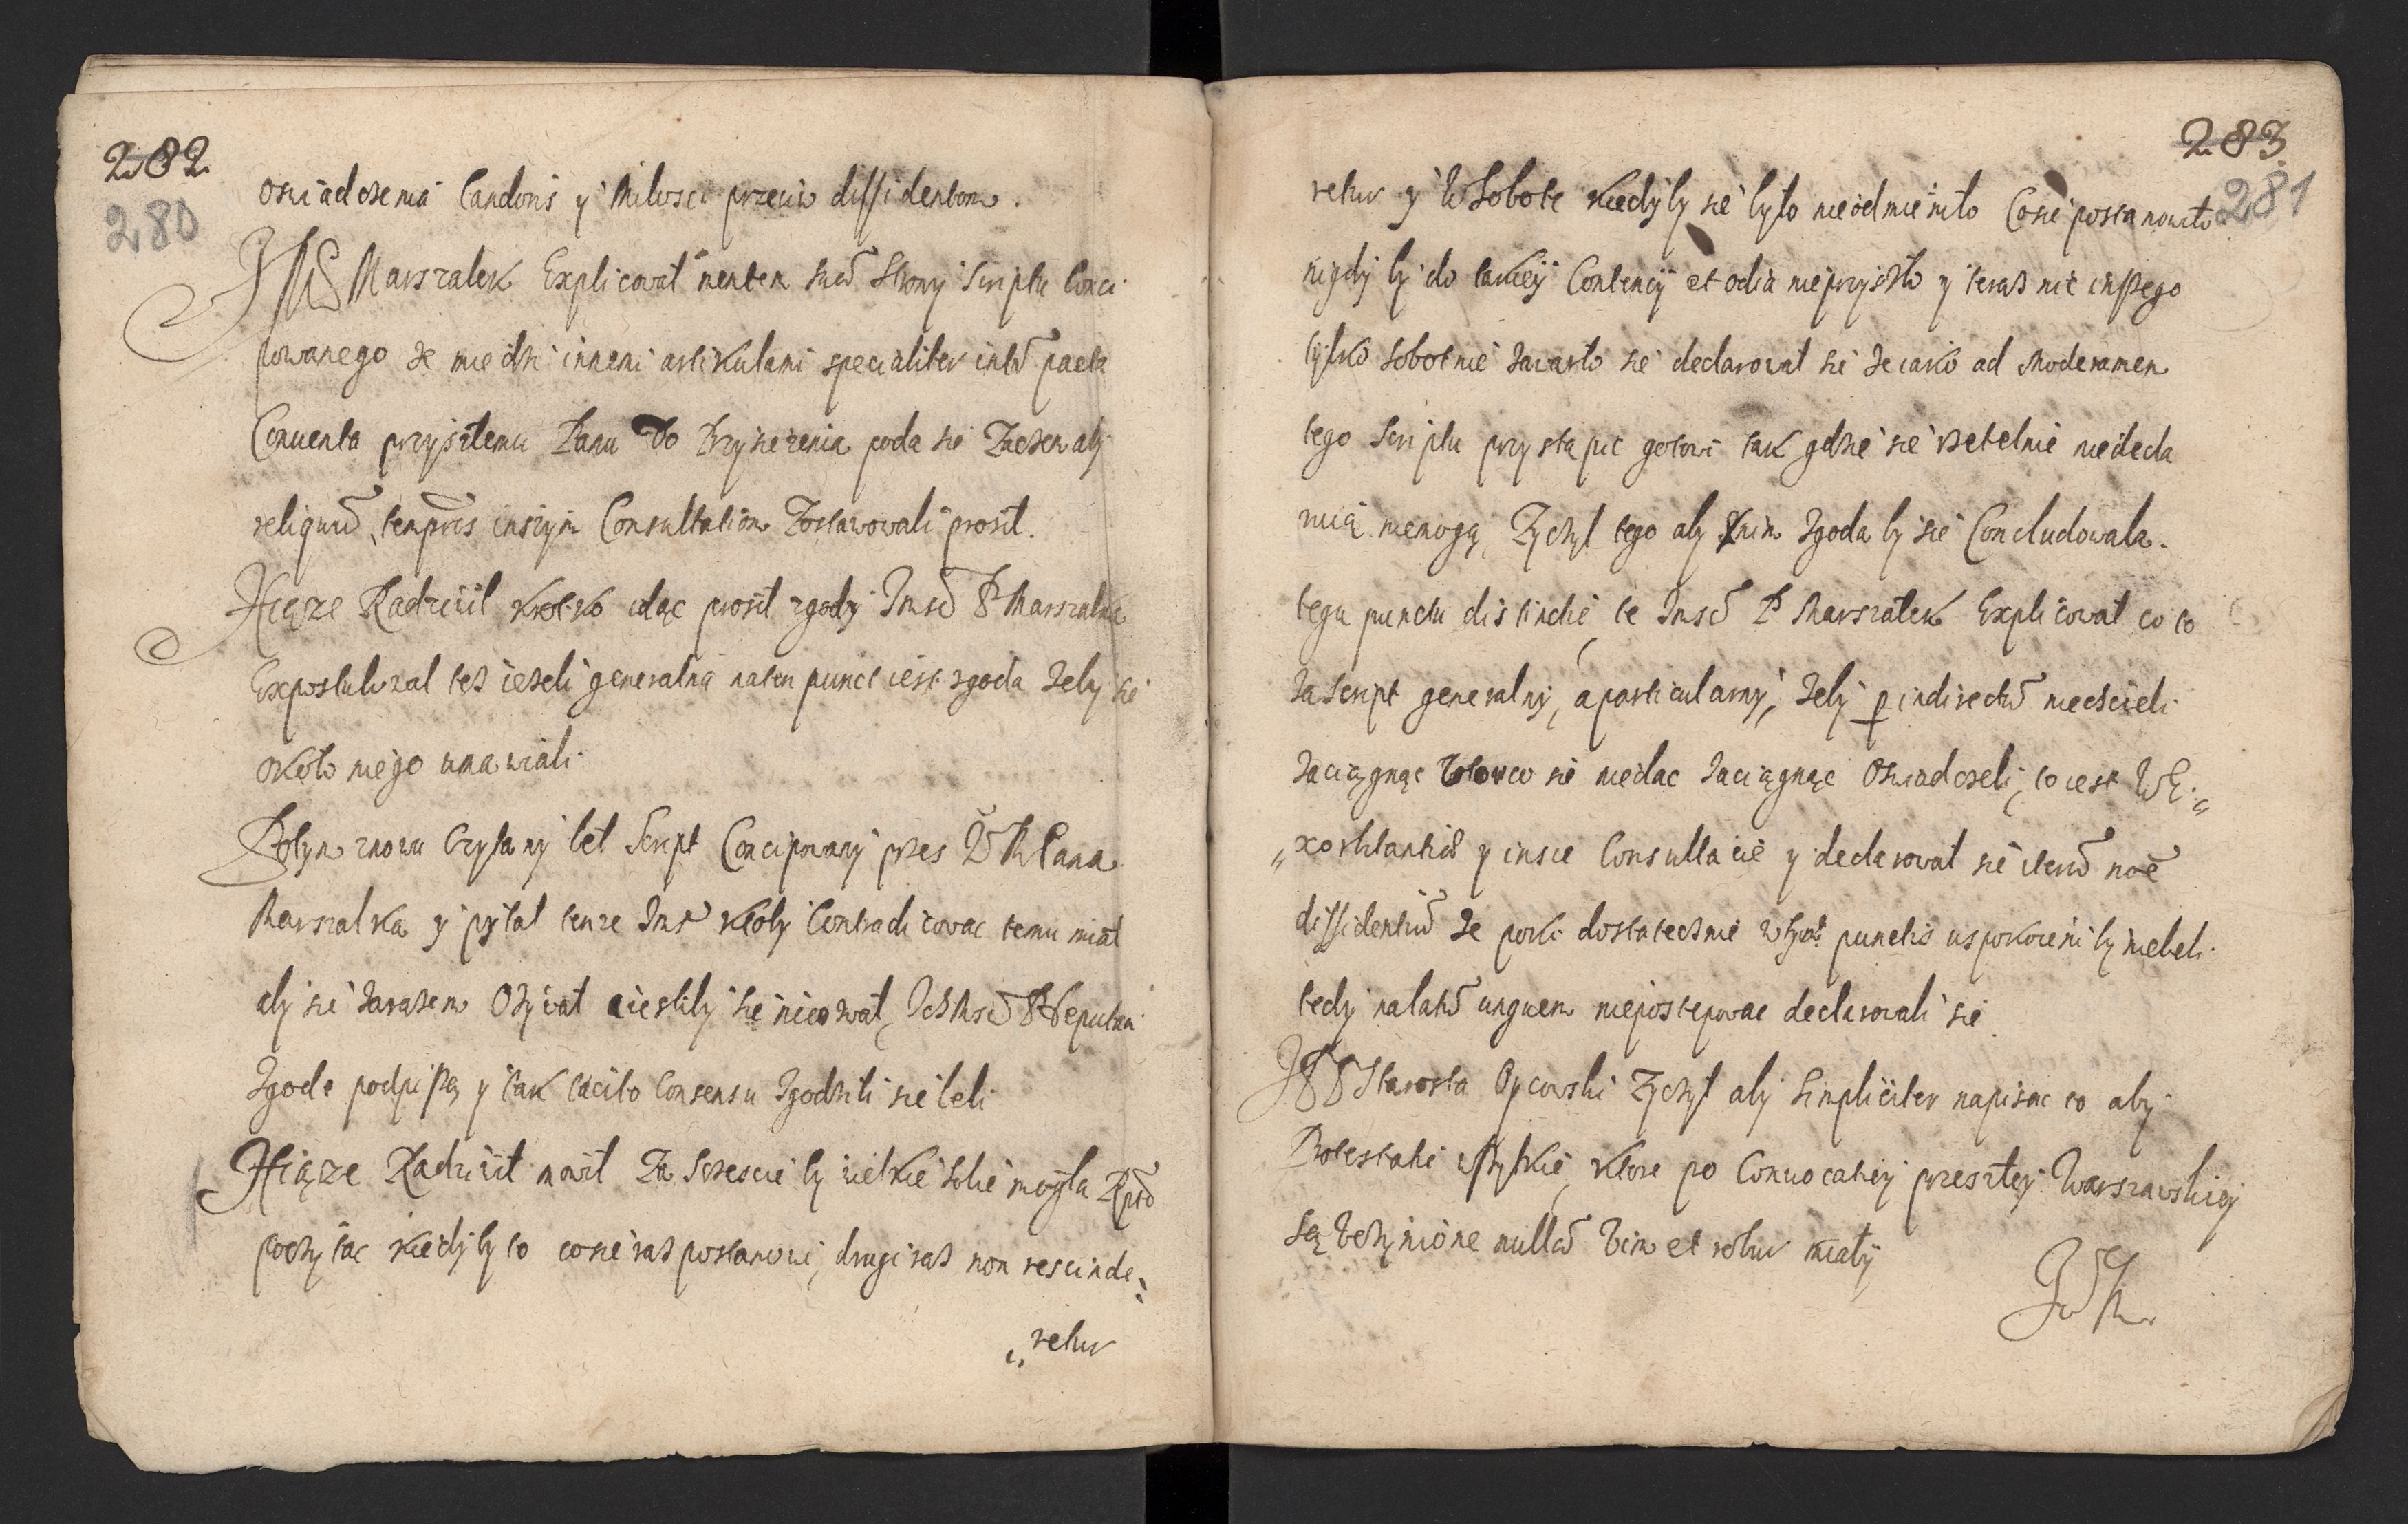 282
280
oswiadczenia Candoris y Milosci przeciw dissidentom.
JMS Marszalek Explicował mentem swoď strony Scriptu Conci
powanego że miedzi innemi artikułami specialiter intď pacta
Conuenta przyszłemu Panu do Przysieżenia poda się Zaczem aby
reliquuď tempris inszym Consultatiom Zostawowali prosił.
Xiąże Radziwił krotko idąc prosił zgody Jmsď P Marszałka
Expostulował też ieżeli generalna naten punct iest zgoda żeby się
około niego umawiali.
Potym znowu Czytany beł Script Concipowany przez JM Pana
Marszałka y pytał tenze Jms ktoby Contradicowac temu miał
aby sie zarazem Ozywał a iesliby sie nieozwał, Ich Msď PP Deputaci
Zgode podpiszą y tak tacito Consensu Zgodzili sie beli
Xiąże Radziwił mowił Za Szczescie by wielkie sobie mogła Rpď
poczytac kiedyby to co sie raz postanowi, drugi raz non rescinde,,
,,retur
283
281
retur y w Sobote kiedyby sie było nieodmieniło Co sie postanowiło
nigdy by do takiey Contency et odia nieprzyszło y teraz nic inszego
tylko sobotnie zawarto sie declarował sie że iako ad Moderamen
tego Scriptu przystąpic gotowi tak gdzie sie rzetelnie niedecla
ruią niemogą, Zyczył tego aby z nim Zgoda by sie Concludowała.
tegu punctu distinctie, te Jmsď P Marszałek Explicował co to
za script generalny, a particularny, żeby p indirectď niechcieli
zaciągnąc Słowco sie niedac zaciągnąc Oswiadczeli, to iest W E,,
,,xorbitantiis y insze Consultacie y declarował sie iterď noē
dissidentiď że poki dostatecznie w tych punctis uspokoieni by niebeli
tedy nalatď unguem niepostepowac declarowali sie
JPP Starosta Oycowski Zyczył aby Simpliciter napisac to aby
Protestatie wszystkie, ktore po Conuocatiey przeszłey Warszawskiey
są Vczynione nullď Vim et robur miały
JW